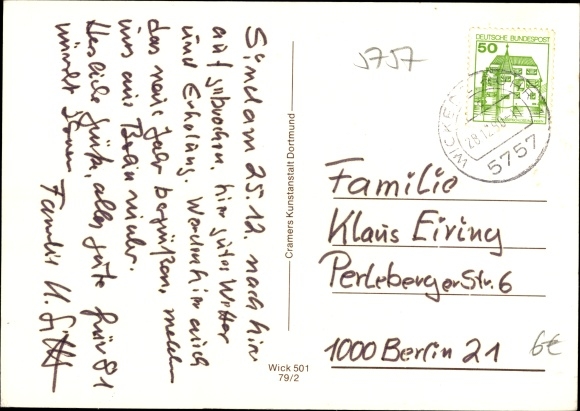 Sind am 25.12. nach hier
aufgebrochen, hier gutes Wetter
und Erholung. Werden hier auch
das neue Jahr begrüßen, melden
uns aus Berlin wieder.
Herzliche Grüße, alles gute für 81
wünscht Ihnen
Familie H.
Cramers Kunstanstalt Dortmund
Wick 501
79/2
5757
DEUTSCHE BUNDESPOST
50
5757
Familie
Klaus Eiring
Perleberger Str. 6
1000 Berlin 21
6€